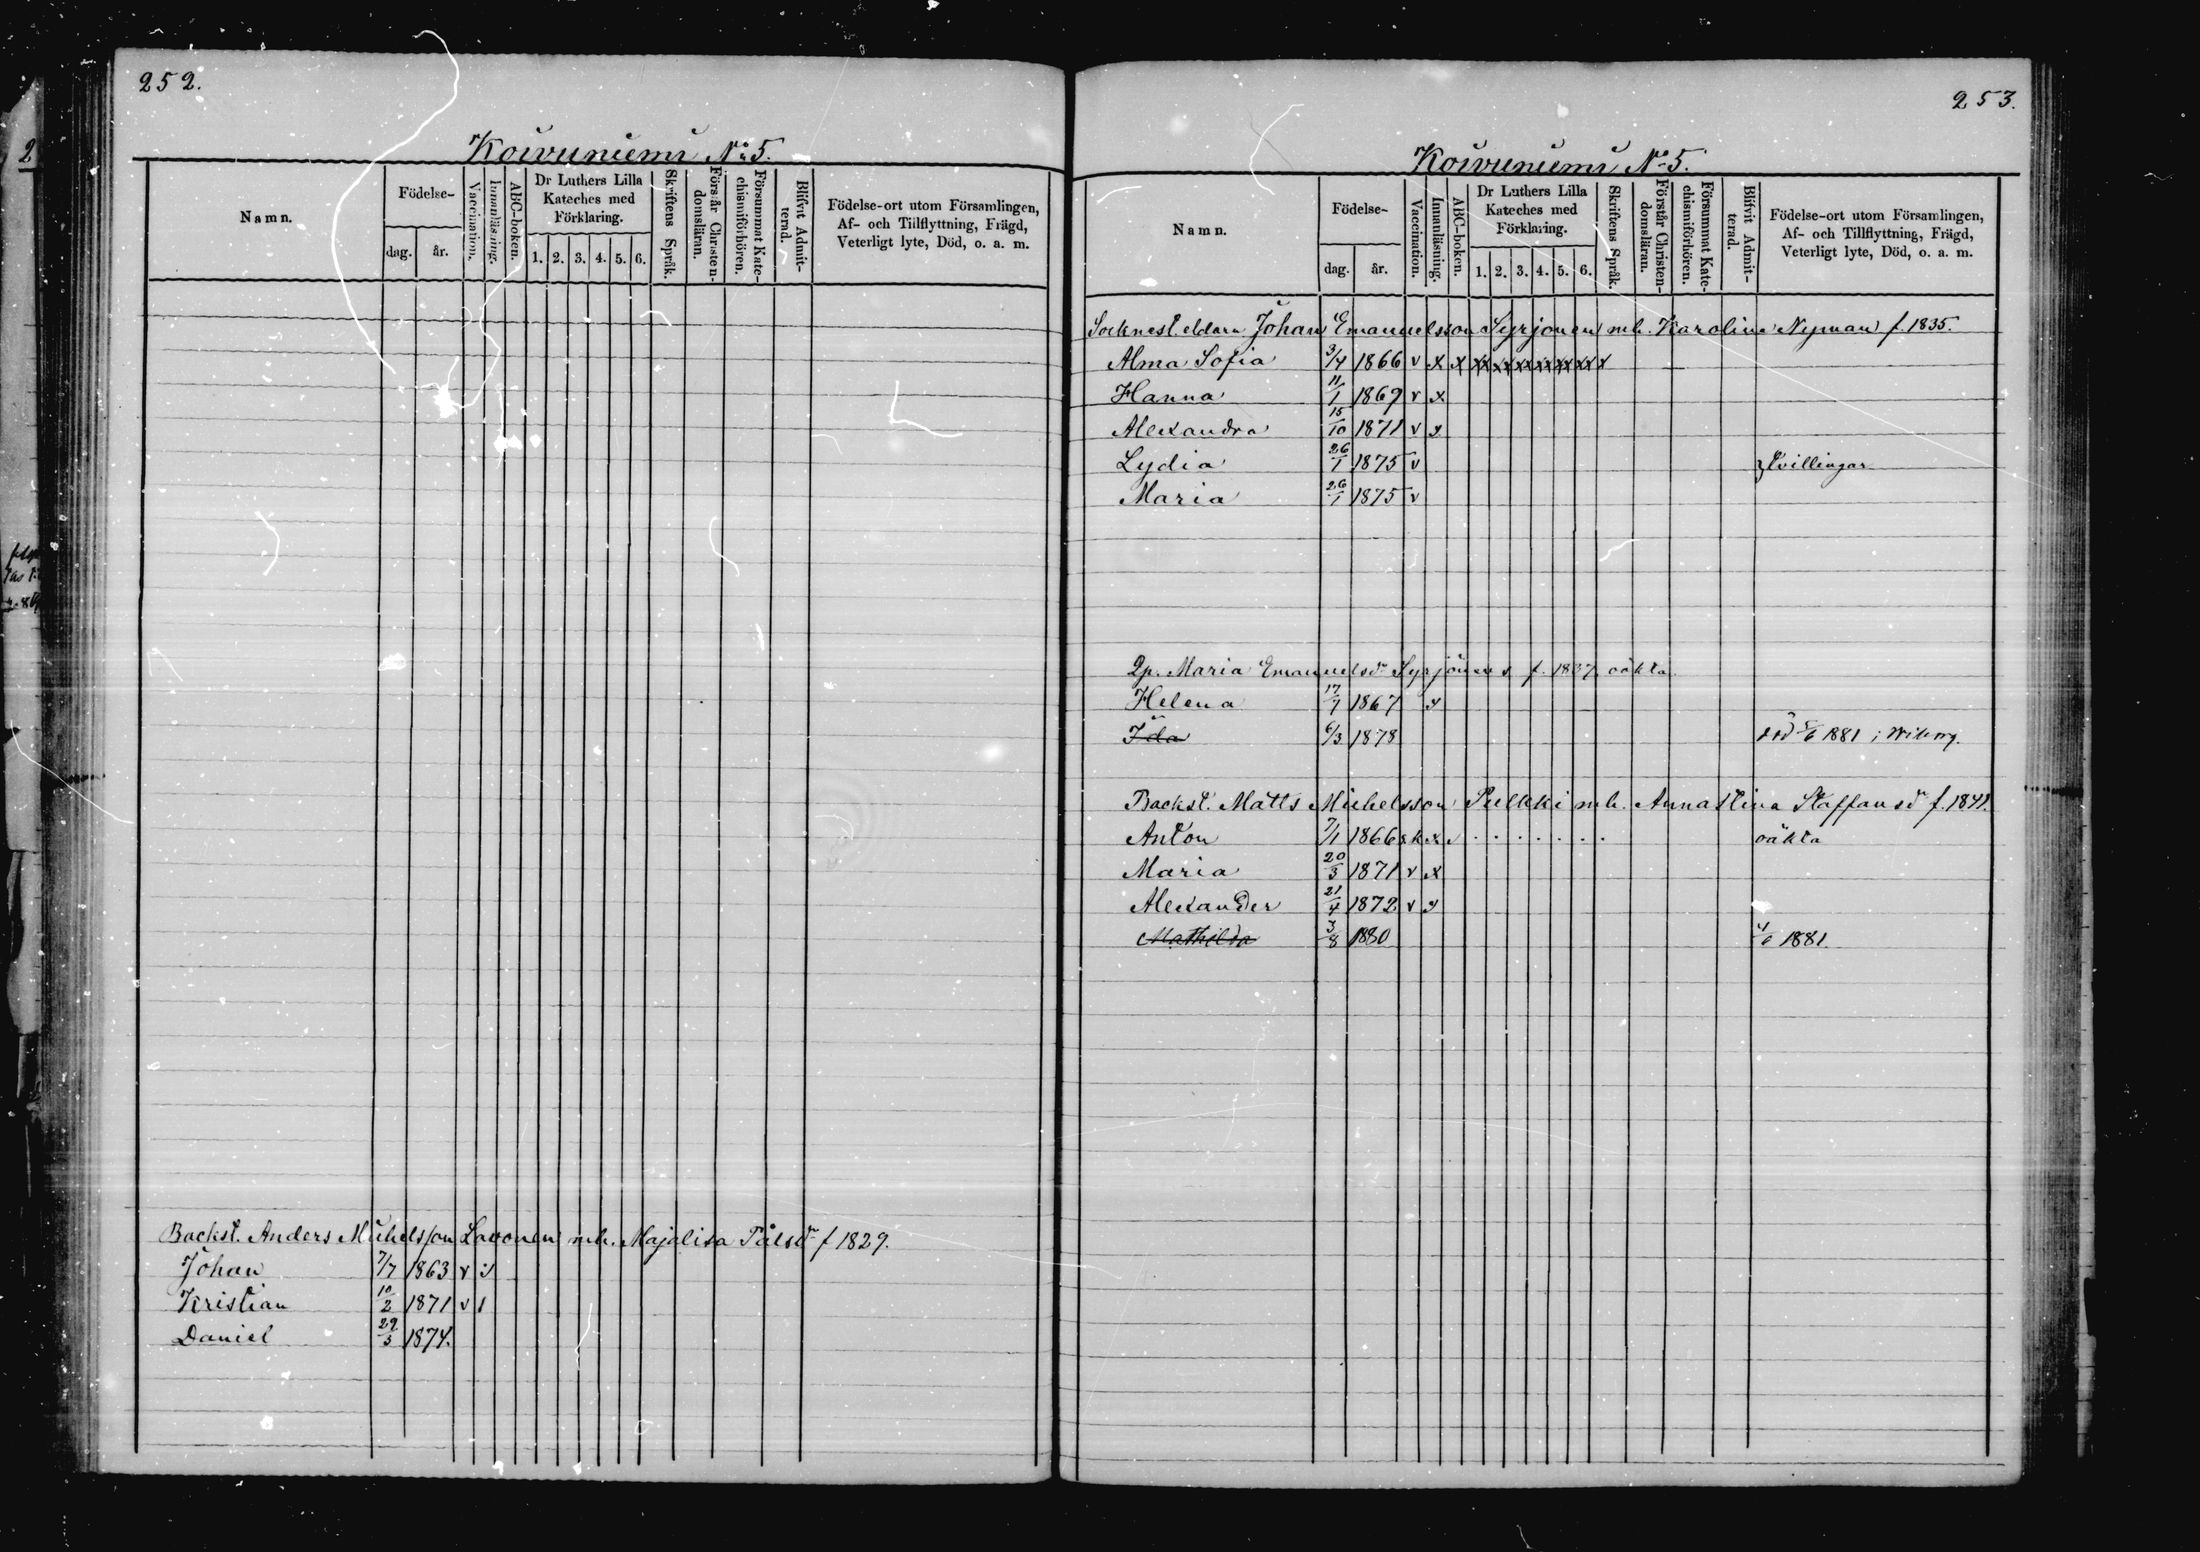 252.
Koivuniemi No 5.
Namn.
Födelse-
dag.
år.
Vaccination.
Innanläsning.
ABC-boken.
Dr Luthers Lilla
Kateches med
Förklaring.
1. 2. 3. 4. 5. 6.
Skriftens Språk.
Förstår Christen-
domsläran.
Försummat Kate-
chismiförhören.
Blifvit Admit-
terad.
Födelse-ort utom Församlingen,
Af- och Tillflyttning, Frägd,
Veterligt lyte, Död, o. a. m.
Backst. Anders Michelsson Lavonen mh. Majalisa Pålsdr f 1829.
Johan 7/7 1863 v
Kristian 10/2 1871 v
Daniel 29/3 1874.
253.
Koivuniemi No 5.
Namn.
Födelse-
dag.
år.
Vaccination.
Innanläsning.
ABC-boken.
Dr Luthers Lilla
Kateches med
Förklaring.
1. 2. 3. 4. 5. 6.
Skriftens Språk.
Förstår Christen-
domsläran.
Försummat Kate-
chismiförhören.
Blifvit Admit-
terad.
Födelse-ort utom Församlingen,
Af- och Tillflyttning, Frägd,
Veterligt lyte, Död, o. a. m.
Johan Emanuelsson Syrjönen mh. Karolina Nyman f. 1835.
Alma Sofia 3/4 1866 v x x xx xx xx xx xx xx x
Hanna 11/1 1869 v x
Alexandra 15/10 1871 v
Lydia 26/1 1875 v Tvillingar
Maria 26/1 1875 v
Maria Emanuelsdr Syrjönen s f. 1837 oäkta
Helena 17/7 1867
Ida 6/3 1878 död 5/6 1881 i Wiborg.
Backst. Matts Michelsson Pulkki mh. Annastina Staffansdr f. 1841.
Anton 7/1 1866 oäkta
Maria 20/3 1871 v x
Alexander 21/4 1872 v
Mathilda 3/8 1880 4/6 1881